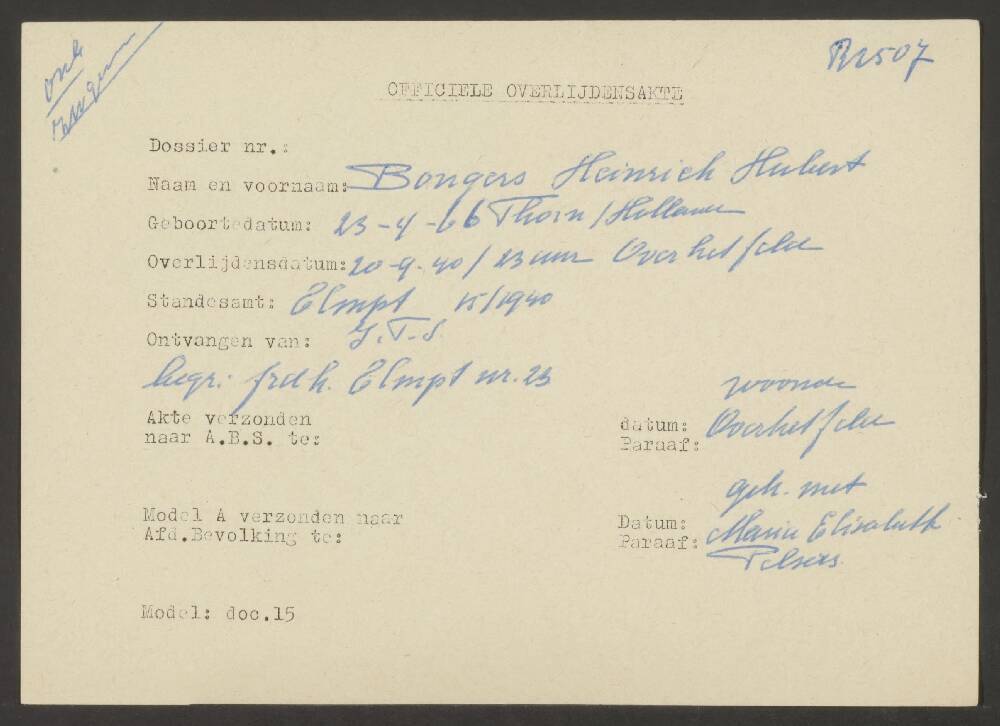 R2507
OFFICIELE OVERLIJDENSAKTE
Dossier nr.:
Naam en voornaam: Bongers Heinrich Hubert
Geboortedatum: 23-4-66 Thorn/Holland
Overlijdensdatum: 20-9-40/23 uur Overhetfelde
Standesamt: Elmpt 15/1940
Ontvangen van: I.T.S.
begr: frdh. Elmpt nr. 23
woonde
Akte verzonden
naar A.B.S. te:
datum: Overhetfelde
Paraaf:
geh. met
Model A verzonden naar
Afd.Bevolking te:
Datum: Maria Elisabeth
Paraaf:
Model: doc.15